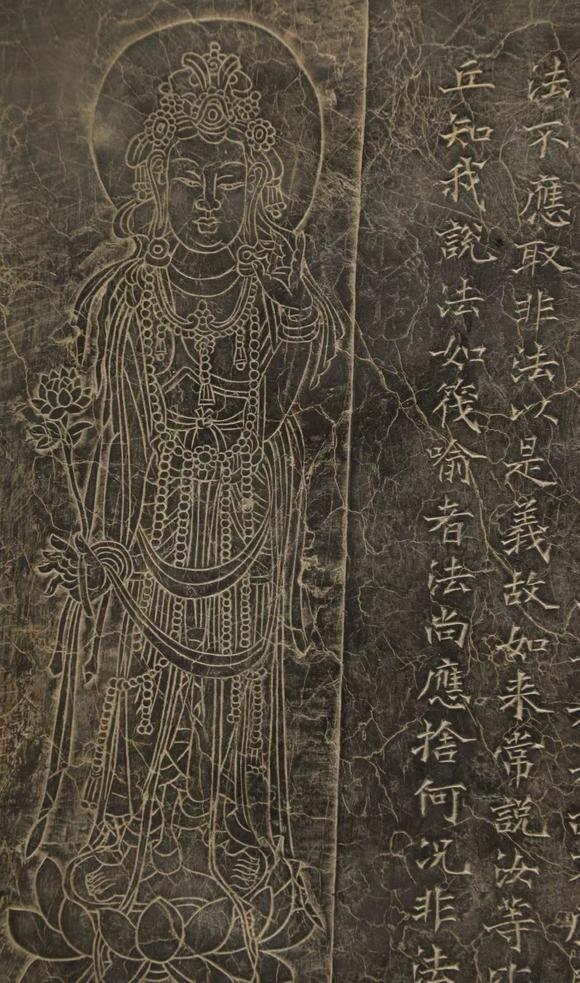 法不應取非法以是義故如来常說汝等比
丘知我說法如筏喻者法尚應捨何况非法